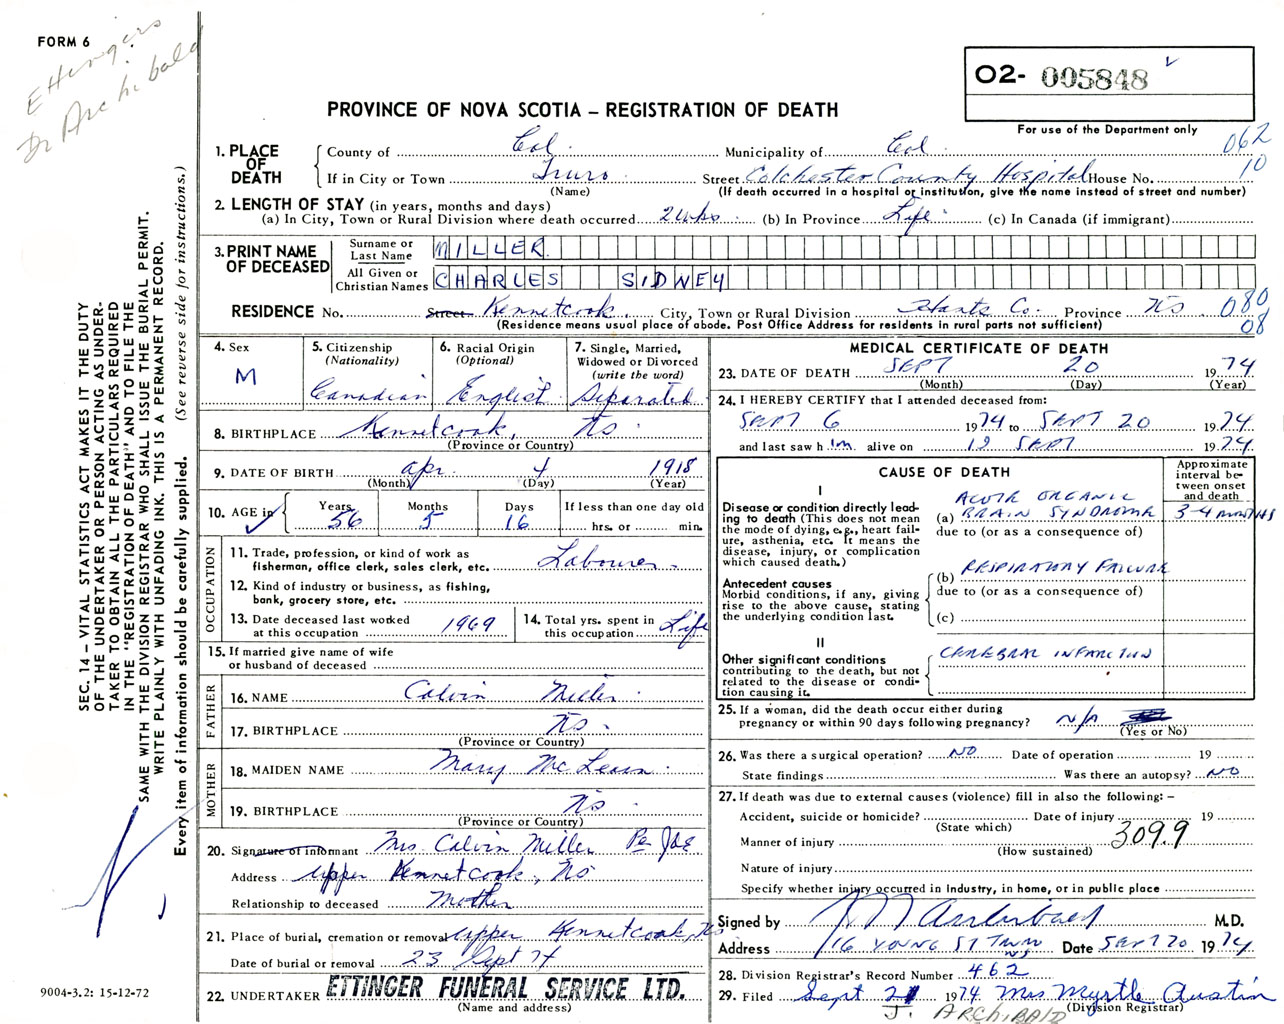 FORM 6
Ettingers
Dr Archibald
O2- 005848
For use of the Department only
PROVINCE OF NOVA SCOTIA – REGISTRATION OF DEATH
062
10
1. PLACE OF DEATH
County of Col. Municipality of Col.
If in City or Town Truro Street Colchester County Hospital House No.
(Name) (If death occurred in a hospital or institution, give the name instead of street and number)
2. LENGTH OF STAY (in years, months and days)
(a) In City, Town or Rural Division where death occurred 2 wks. (b) In Province Life. (c) In Canada (if immigrant)
3. PRINT NAME OF DECEASED
Surname or Last Name MILLER
All Given or Christian Names CHARLES SIDNEY
RESIDENCE No. Street Kennetcook, City, Town or Rural Division Hants Co. Province NS. 080
08
(Residence means usual place of abode. Post Office Address for residents in rural parts not sufficient)
4. Sex
M
5. Citizenship
(Nationality)
Canadian
6. Racial Origin
(Optional)
English
7. Single, Married, Widowed or Divorced
(write the word)
Separated
8. BIRTHPLACE Kennetcook, NS.
(Province or Country)
9. DATE OF BIRTH apr. 4 1918
(Month) (Day) (Year)
10. AGE in
Years Months Days If less than one day old
56 5 16 hrs. or min.
OCCUPATION
11. Trade, profession, or kind of work as fisherman, office clerk, sales clerk, etc. Labourer.
12. Kind of industry or business, as fishing, bank, grocery store, etc.
13. Date deceased last worked at this occupation 1969
14. Total yrs. spent in this occupation Life
15. If married give name of wife or husband of deceased
FATHER
16. NAME Calvin Miller.
17. BIRTHPLACE NS.
(Province or Country)
MOTHER
18. MAIDEN NAME Mary McLean.
19. BIRTHPLACE NS.
(Province or Country)
20. Signature of informant Mrs Calvin Miller Per JDE
Address Upper Kennetcook, NS
Relationship to deceased Mother
21. Place of burial, cremation or removal Upper Kennetcook, NS
Date of burial or removal 23 Sept 74
22. UNDERTAKER ETTINGER FUNERAL SERVICE LTD.
(Name and address)
MEDICAL CERTIFICATE OF DEATH
23. DATE OF DEATH SEPT 20 1974
(Month) (Day) (Year)
24. I HEREBY CERTIFY that I attended deceased from:
SEPT 6 1974 to SEPT 20 1974
and last saw h im alive on 12 SEPT 1974
CAUSE OF DEATH
Approximate interval between onset and death
I
Disease or condition directly leading to death (This does not mean the mode of dying, e.g., heart failure, asthenia, etc. It means the disease, injury, or complication which caused death.)
(a) ACUTE ORGANIC BRAIN SYNDROME 3-4 MONTHS
due to (or as a consequence of)
Antecedent causes
Morbid conditions, if any, giving rise to the above cause, stating the underlying condition last.
(b) RESPIRATORY FAILURE
due to (or as a consequence of)
(c)
II
Other significant conditions contributing to the death, but not related to the disease or condition causing it.
CEREBRAL INFARCTION
25. If a woman, did the death occur either during pregnancy or within 90 days following pregnancy? N/A
(Yes or No)
26. Was there a surgical operation? NO Date of operation 19
State findings Was there an autopsy? NO
27. If death was due to external causes (violence) fill in also the following: –
Accident, suicide or homicide? Date of injury 19
(State which)
Manner of injury 309.9
(How sustained)
Nature of injury
Specify whether injury occurred in industry, in home, or in public place
Signed by M Archibald M.D.
Address 16 YOUNG ST TRURO NS Date SEPT 20 1974
28. Division Registrar's Record Number 462
29. Filed Sept 21 1974 Mrs Myrtle Austin
(Division Registrar)
J. ARCHIBALD
SEC. 14 – VITAL STATISTICS ACT MAKES IT THE DUTY
OF THE UNDERTAKER OR PERSON ACTING AS UNDER-
TAKER TO OBTAIN ALL THE PARTICULARS REQUIRED
IN THE "REGISTRATION OF DEATH" AND TO FILE THE
SAME WITH THE DIVISION REGISTRAR WHO SHALL ISSUE THE BURIAL PERMIT.
WRITE PLAINLY WITH UNFADING INK. THIS IS A PERMANENT RECORD.
Every item of information should be carefully supplied. (See reverse side for instructions.)
9004-3.2: 15-12-72